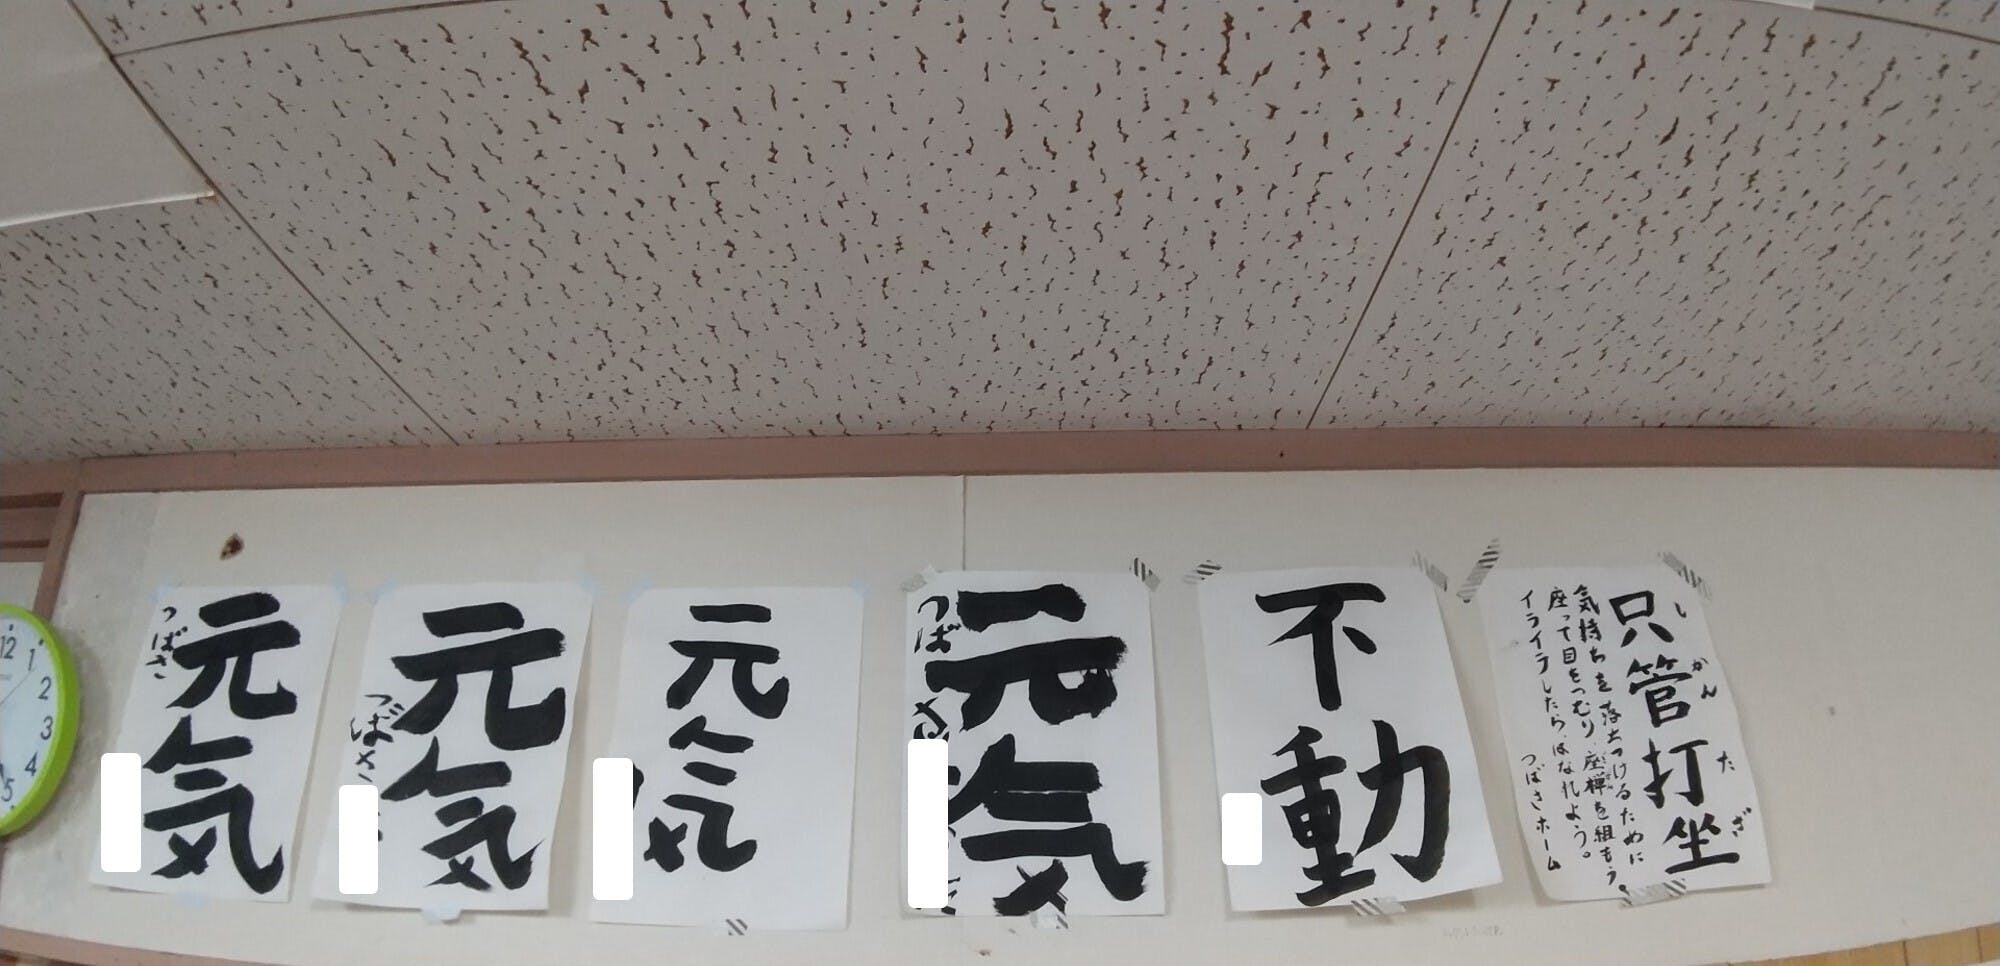 12
1
2
3
4
5
つばさ
元気
つばさ
元気
元気
つばさ
元気
不動
只管打坐
しかんたざ
気持ちを落ちつけるために
座って目をつむり、座禅を組もう。
イライラしたら、はなれよう。
つばさホーム